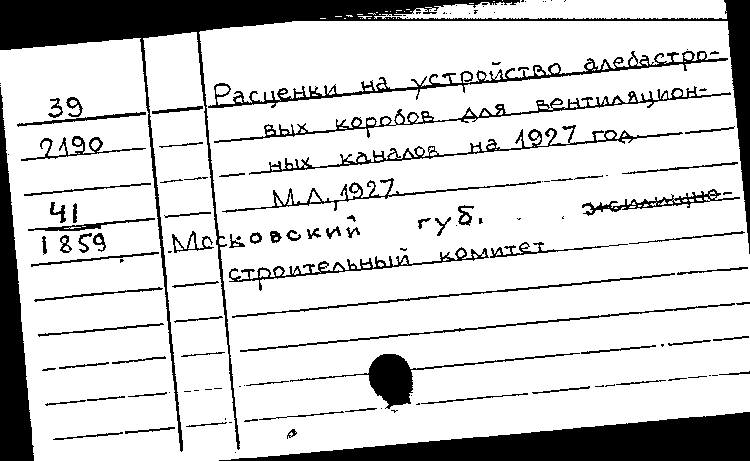 39
2190
41
1859
Расценки на устройство алебастро-
вых коробов для вентиляцион-
ных каналов на 1927 год
М.Л., 1927.
Московский губ. жилищно-
строительный комитет